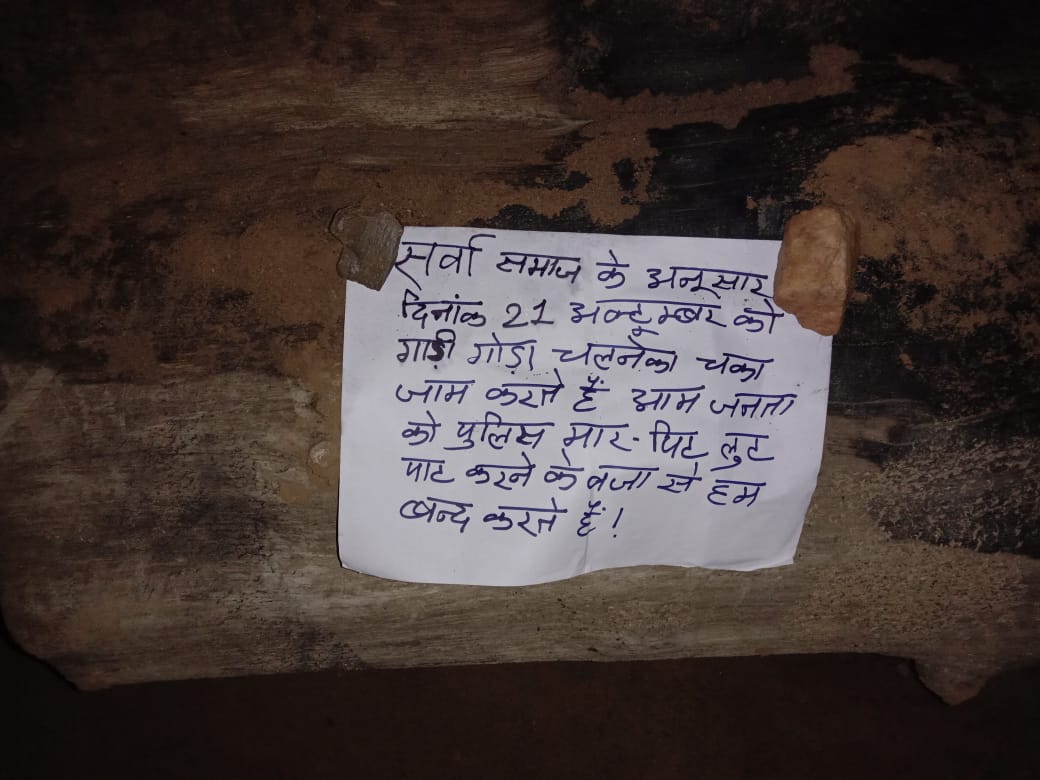 सर्वा समाज के अनूसार
दिनांक 21 अक्टूम्बर को
गाड़ी गोड़ा चलनेका चका
जाम करते हैं आम जनता
को पुलिस मार-पिट लुट
पाट करने के वजा से हम
बन्द करते हैं!